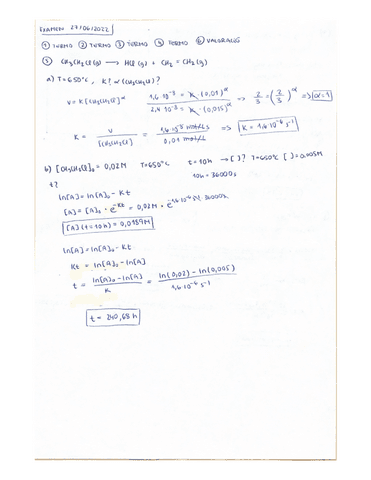 EXAMEN 27/06/2022
① TERMO ② TERMO ③ TERMO ④ TERMO ⑥ VALORACIÓN
⑤ CH₃CH₂Cl (g) ⟶ HCl (g) + CH₂ = CH₂ (g)
a) T = 650°C , K? α (CH₃CH₂Cl)?
v = K [CH₃CH₂Cl]^α 1,6·10⁻⁸ = K · (0,01)^α / 2,4·10⁻⁸ = K · (0,015)^α => 2/3 = (2/3)^α => α = 1
K = v / [CH₃CH₂Cl] = 1,6·10⁻⁸ mol/L·s / 0,01 mol/L => K = 1,6·10⁻⁶ s⁻¹
b) [CH₃CH₂Cl]₀ = 0,02M T = 650°C t = 10h → [ ]? T = 650°C [ ] = 0,005M
t? 10h = 36000s
ln[A] = ln[A]₀ - Kt
[A] = [A]₀ · e^-Kt = 0,02M · e^-1,6·10⁻⁶ s⁻¹ · 36000s
[A](t=10h) = 0,0189M
ln[A] = ln[A]₀ - Kt
Kt = ln[A]₀ - ln[A]
t = ln[A]₀ - ln[A] / K = ln(0,02) - ln(0,005) / 1,6·10⁻⁶ s⁻¹
t = 240,68 h